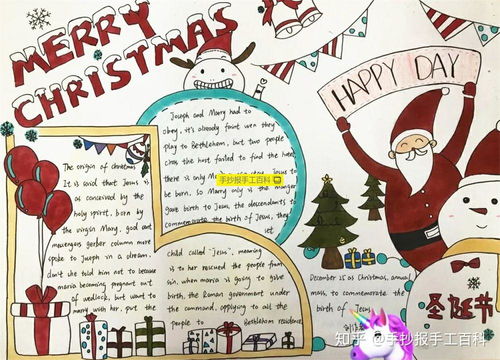 MERRY
CHRISTMAS
HAPPY DAY
The origin of christmas
It is said that Jesus is
as conceived by the
holy spirit, born by
the virgin Mary, god and
gerber column more
spoke to Joseph in a dream.
don't she told him not to because
maria becoming pregnant out
of wedlock, but want to
marry with her, put the
Joseph and Marry had to
obey, it's already faint wen they
play to Bethlehem, but two people
cross the host failed to find the hotel
there is only to
be born, so Marry only is the manger
gave birth to Jesus, the descendants to
commemorate the birth of Jesus, they
set
手抄报手工百科
child called "Jesus", meaning
is to her rescued the people from
sin, when maria is going to give
birth, the Roman government under
the command, applying to all the
people to Bethlehem residence
December 25 as Christmas, annual
mass, to commemorate the
birth of Jesus
圣诞节
知乎 @手抄报手工百科